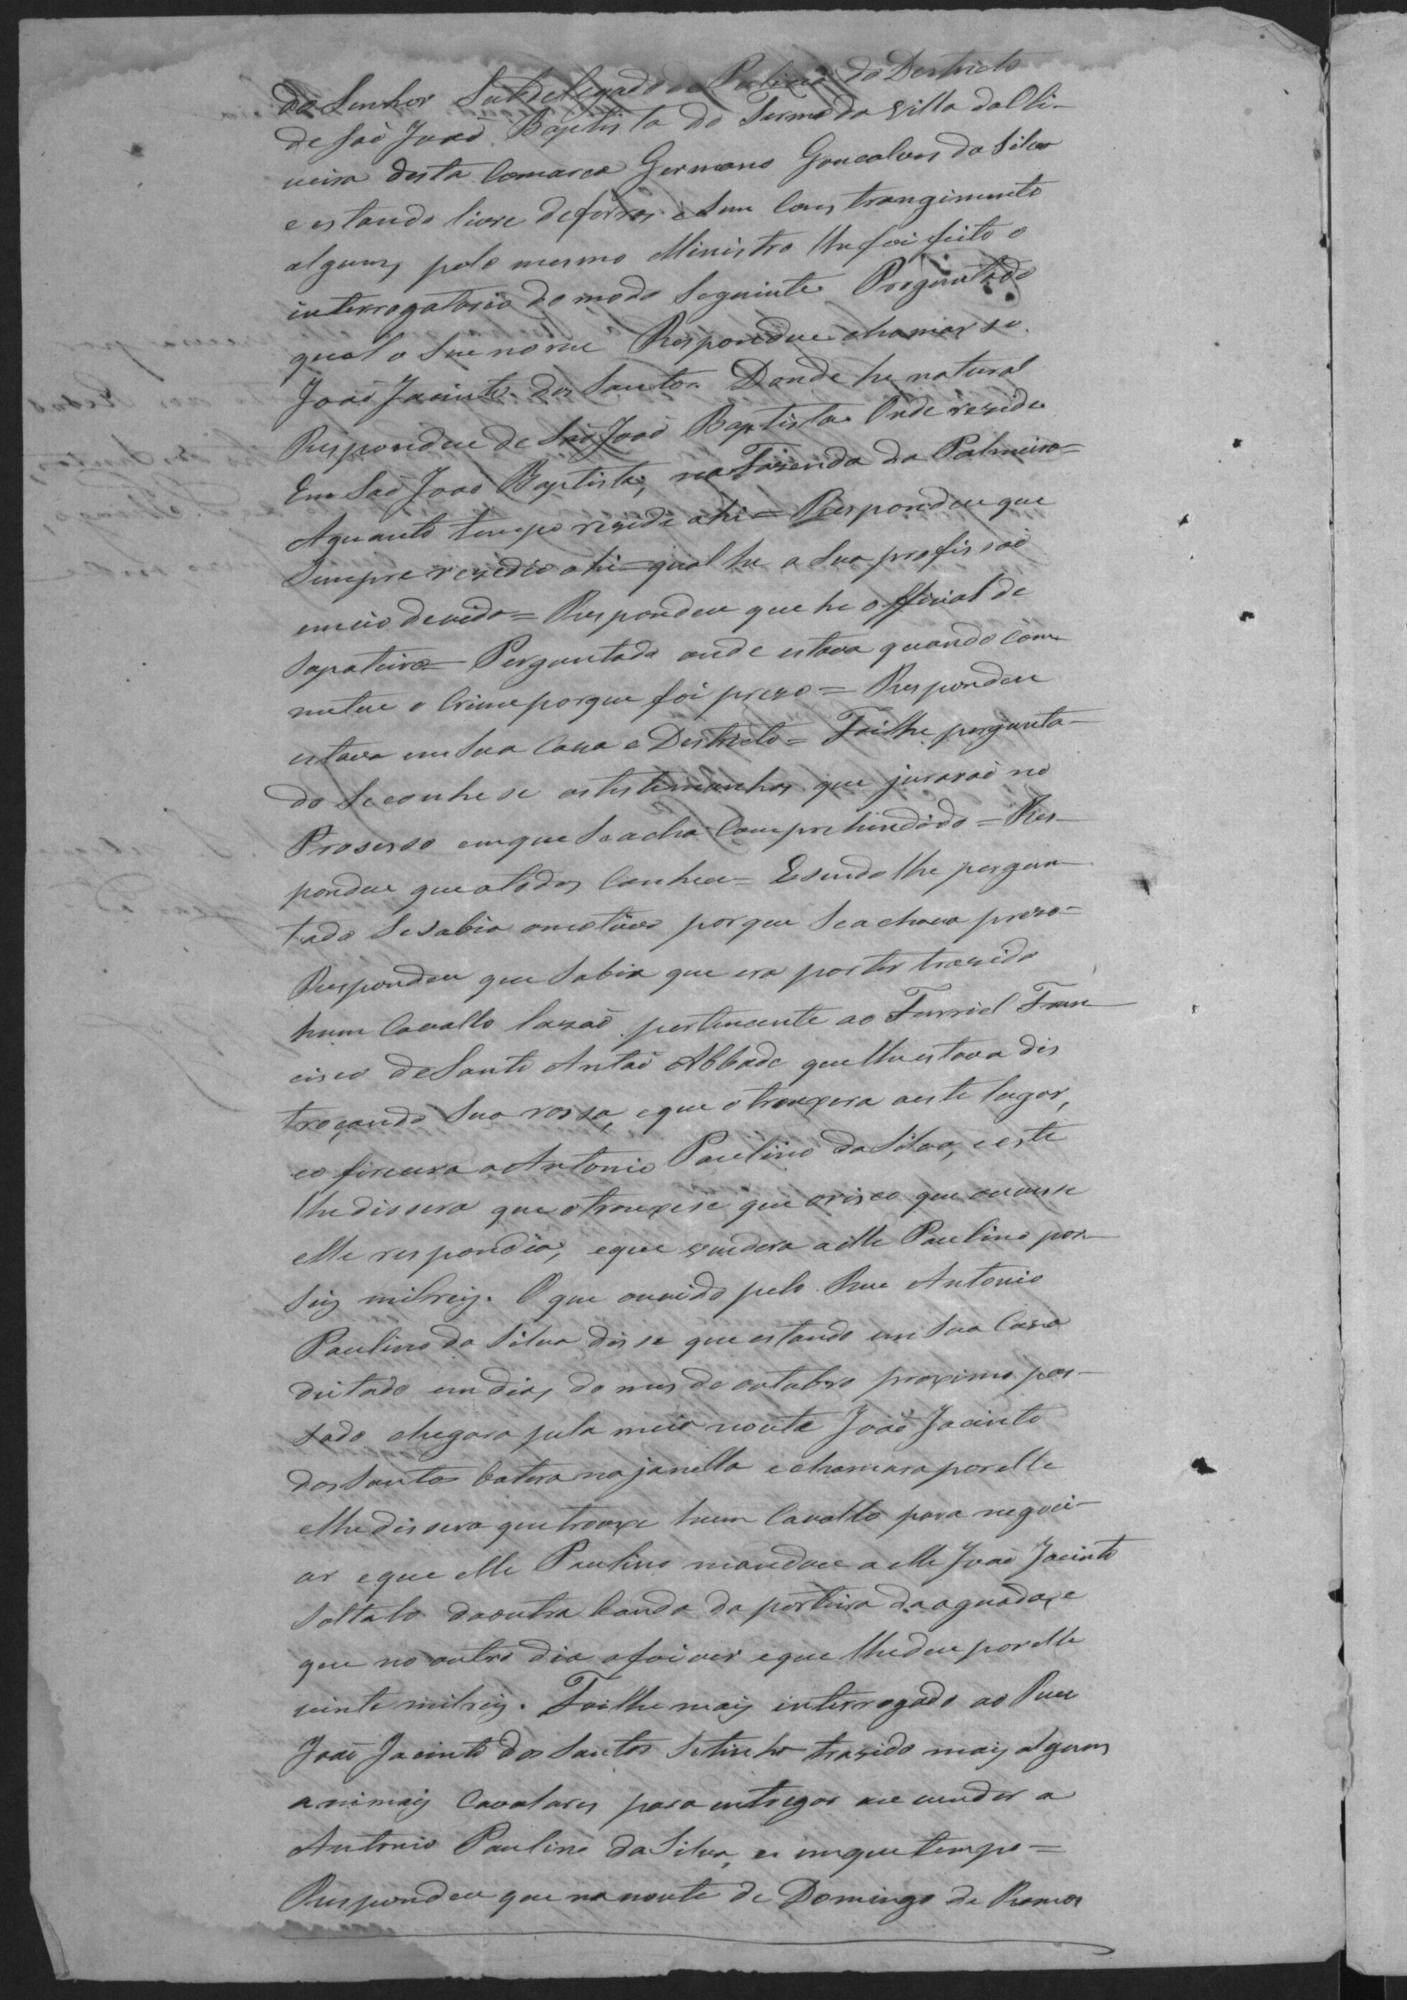 do Senhor Subdelegado de Policia do Destricto
de São João Baptista do Termo da Villa da Oli-
veira desta Comarca Germano Goncalves da Silva
e estando livre de ferros e sem Constrangimento
algum, pelo mesmo Ministro lhe foi feito o
interrogatorio do modo Seguinte. Preguntado
qual o Seu nome Respondeu chamar se
João Jacinto dos Santos. Donde he natural
Respondeu de São João Baptista. Onde reside
Em São João Baptista, na Fazenda da Palmeira=
A quanto tempo reside ahi= Respondeu que
Sempre residio ahi= qual he a Sua profissaõ
e meio de vida= Respondeu que he official de
Sapateiro= Perguntado onde estava quando com
meteu o Crime porque foi prezo= Respondeu
estava em Sua Casa e Destricto= Foi lhe pergunta-
do Se conhese as testemunhas que juraraõ no
Prosesso em que Se acha Comprehindido= Res-
pondeu que a todos Conhece= E sendo lhe pergun-
tado Se Sabia o motivo porque Se achava prezo=
Respondeu que Sabia que era por ter trazido
hum Cavallo lazaõ pertencente ao Furriel Fran
cisco de Santo Antaõ Abbade que lhe estava dis
troçando Sua rossa, e que o trouxera a este lugar,
e o fircura a Antonio Paulino da Silva, e este
lhe dissera que o trouxese que o risco que ouvesse
elle respondia, e que vendera a elle Paulino por
Seis milreis. O que ouvido pelo Reu Antonio
Paulino da Silva disse que estando em Sua Casa
deitado em dias do mes de outubro proximo pas-
sado chegara pela meia noute João Jacinto
dos Santos batera na janella e chamara por elle
e lhe dissera que trouxe hum Cavallo para negoci-
ar e que elle Paulino mandou a elle João Jacinto
Soltalo da outra banda da porteira da aguada, e
que no outro dia o foi ver e que lhe deu por elle
vinte milreis. Foi lhe mais interrogado ao Reu
João Jacinto dos Santos Se tinha trazido mais alguns
animais Cavalares para entregar ou vender a
Antonio Paulino da Silva, e em que tempo=
Respondeu que na noute de Domingo de Ramos